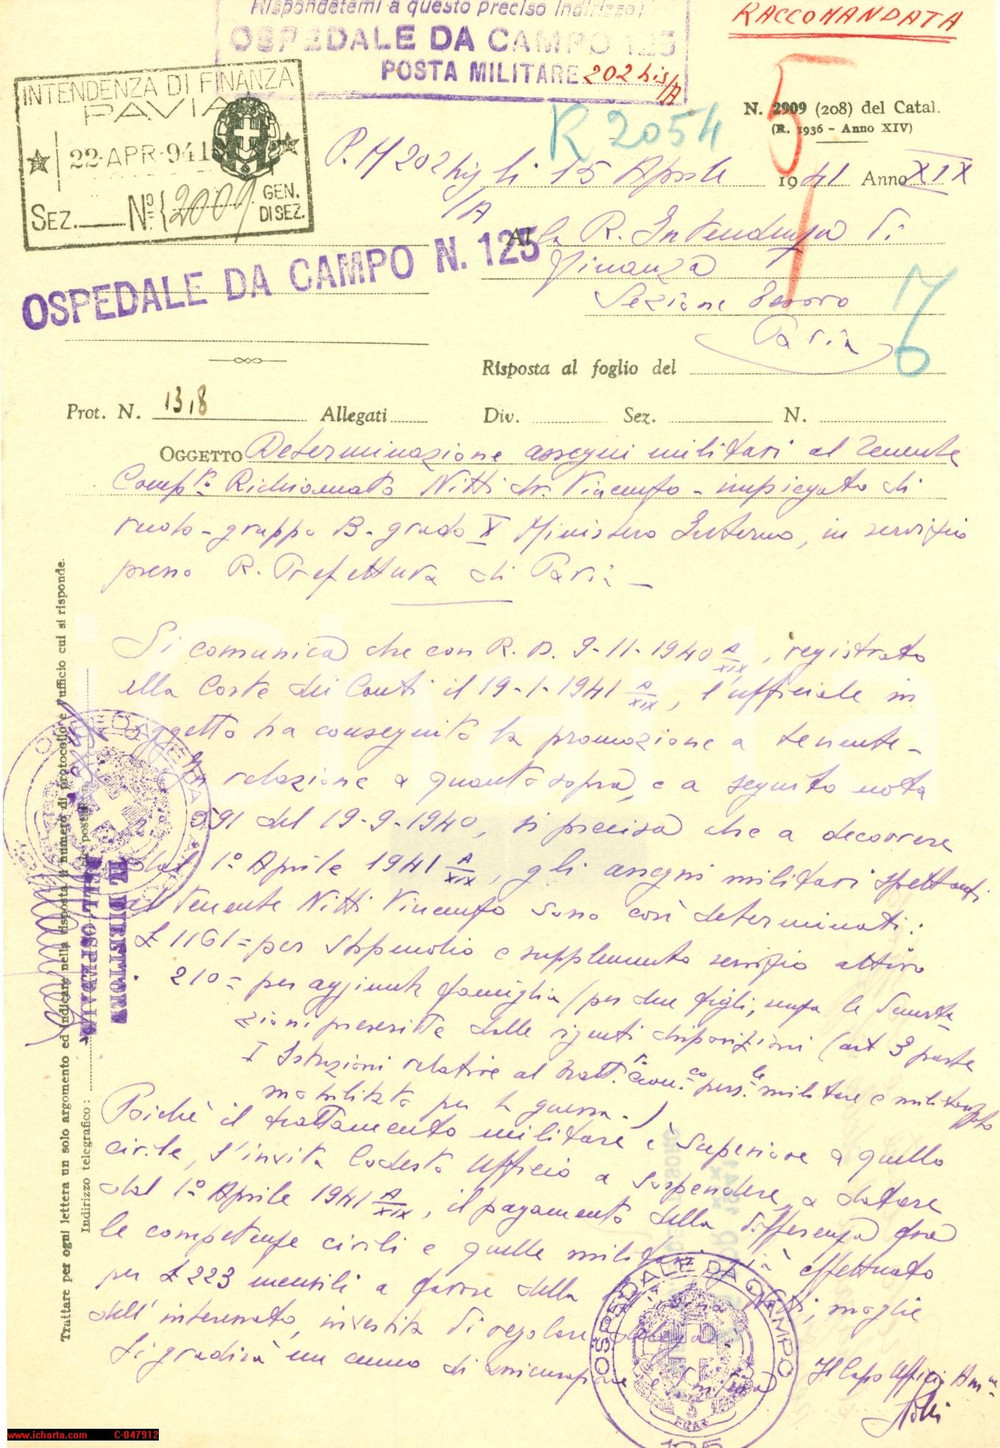 Rispondetemi a questo preciso indirizzo:
OSPEDALE DA CAMPO 125
POSTA MILITARE 202 bis/A
RACCOMANDATA
INTENDENZA DI FINANZA
PAVIA
22 APR. 941
SEZ. N.º 2009 GEN. DI SEZ.
N. 2909 (208) del Catal.
(R. 1936 - Anno XIV)
R 2054
5
P.M 202 bis/A li 15 Aprile 1941 Anno XIX
Alla R. Intendenza di
Finanza
Sezione Tesoro
Pavia
76
OSPEDALE DA CAMPO N. 125
Risposta al foglio del
Prot. N. 1318 Allegati Div. Sez. N.
OGGETTO Determinazione assegni militari al Tenente
Comp.to Richiamato Nitti dr. Vincenzo - impiegato di
ruolo - gruppo B - grado X Ministero Interno, in servizio
presso R. Prefettura di Pavia -
Si comunica che con R. D. 9-11-1940 A/XIX, registrato
alla Corte dei Conti il 19-1-1941 A/XIX, l'ufficiale in
oggetto ha conseguito la promozione a tenente -
In relazione a quanto sopra, e a seguito nota
591 del 19-9-1940, si precisa che a decorrere
dal 1º Aprile 1941 A/XIX, gli assegni militari spettanti
al Tenente Nitti Vincenzo sono così determinati:
£ 1161 = per stipendio e supplemento servizio attivo
" 210 = per aggiunta famiglia (per due figli, senza le
prescritte dalle vigenti disposizioni (art 3 parte
I Istruzioni relative al tratt. econ.co pers.le militare e militarizzato
mobilitato per la guerra.)
Poichè il trattamento militare è superiore a quello
civile, s'invita codesto Ufficio a sospendere, a datare
dal 1º Aprile 1941 A/XIX, il pagamento della differenza fra
le competenze civili e quelle militari già effettuato
per £ 223 mensili a favore della Nitti, moglie
dell'interessato, investita di regolare
Si gradirà un cenno di assicurazione
Il Capo Ufficio Amm.ne
OSPEDALE DA CAMPO
125
IL DIRETTORE
DELL'OSPEDALE
Trattare per ogni lettera un solo argomento ed indicare nella risposta il numero di protocollo e l'ufficio cui si risponde.
Indirizzo telegrafico:
www.icharta.com C-047912